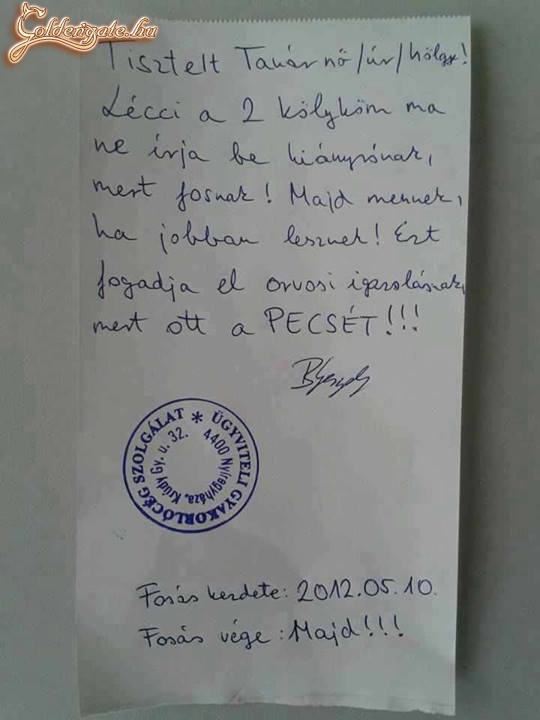 Goldengate.hu
Tisztelt Tanár nő/úr/hölgy!
Lécci a 2 kölyköm ma
ne írja be hiányzónak,
mert fosnak! Majd mennek,
ha jobban lesznek! Ezt
fogadja el orvosi igazolásnak,
mert ott a PECSÉT!!!
ÜGYVITELI GYAKORLÓCÉG SZOLGÁLAT *
4400 Nyíregyháza, Krúdy Gy. u. 32.
Fosás kezdete: 2012.05.10.
Fosás vége: Majd!!!